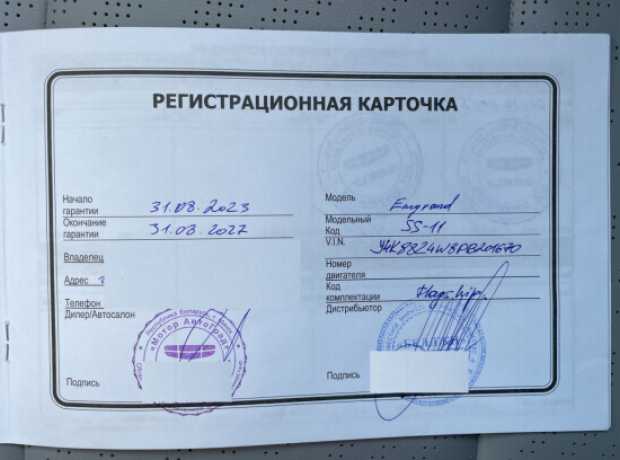 РЕГИСТРАЦИОННАЯ КАРТОЧКА
Начало
гарантии 31.08.2023
Окончание
гарантии 31.08.2027
Владелец
Адрес
Телефон
Дилер/Автосалон
«Мотор АвтоГрад»
Подпись
Модель Emgrand
Модельный
Код SS-11
V.I.N. Y4K8824W8PB201670
Номер
двигателя
Код
комплектации Flagship
Дистрибьютор
Подпись